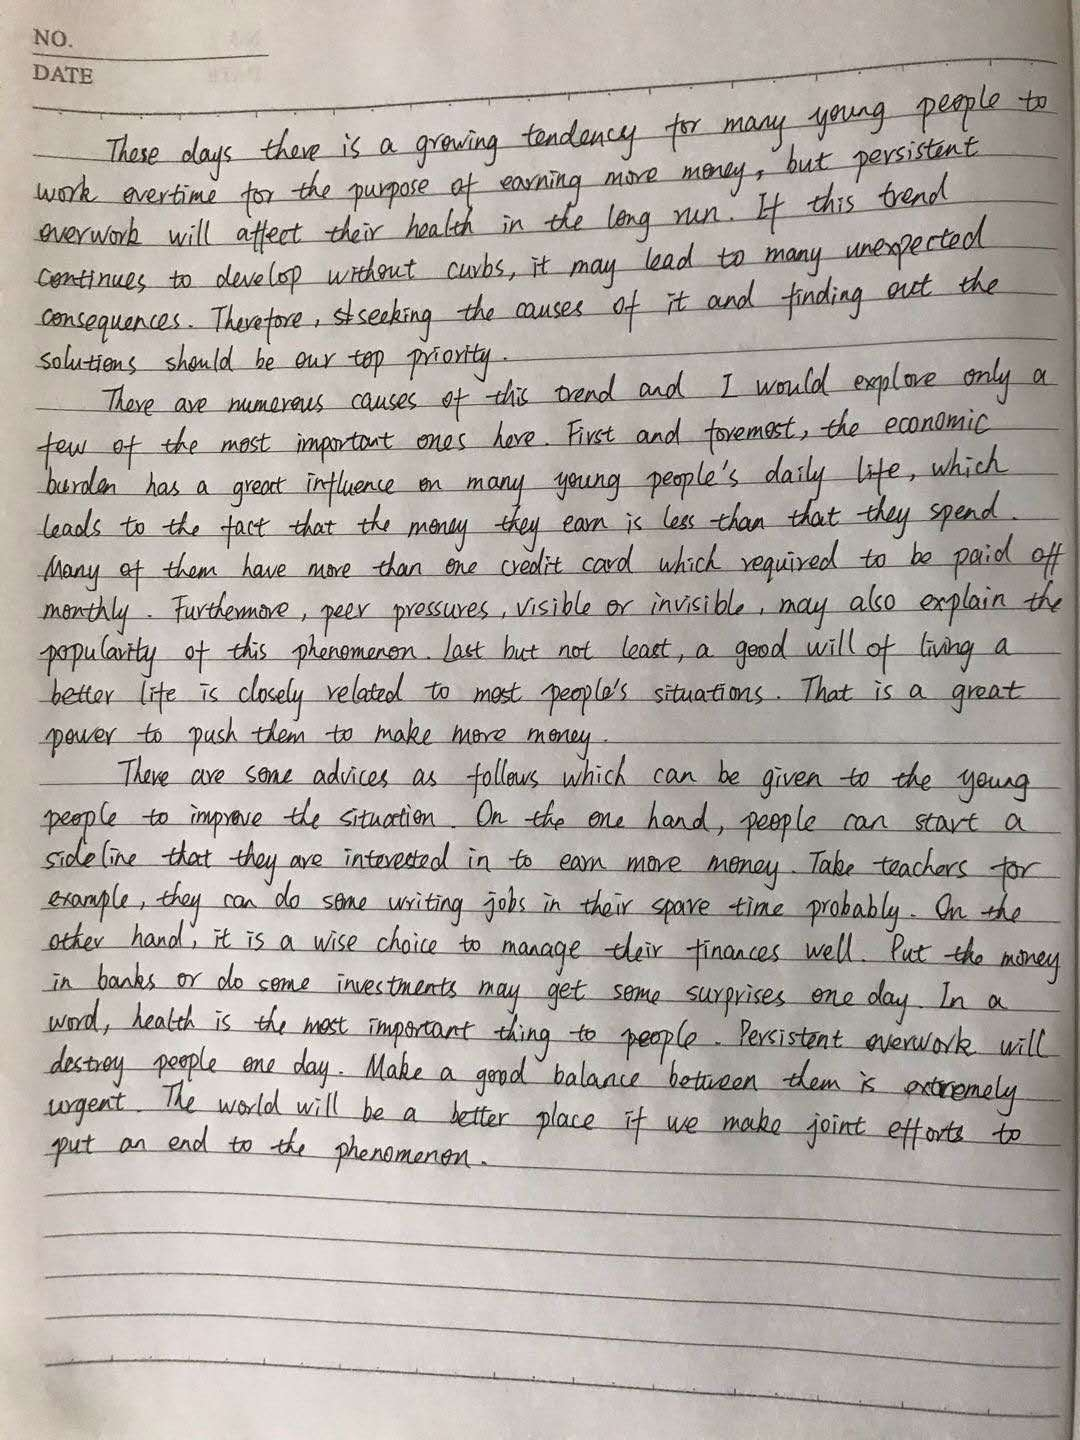 NO.
DATE
These days there is a growing tendency for many young people to
work overtime for the purpose of earning more money, but persistent
overwork will affect their health in the long run. If this trend
continues to develop without curbs, it may lead to many unexpected
consequences. Therefore, seeking the causes of it and finding out the
solutions should be our top priority.
There are numerous causes of this trend and I would explore only a
few of the most important ones here. First and foremost, the economic
burden has a great influence on many young people's daily life, which
leads to the fact that the money they earn is less than that they spend.
Many of them have more than one credit card which required to be paid off
monthly. Furthermore, peer pressures, visible or invisible, may also explain the
popularity of this phenomenon. Last but not least, a good will of living a
better life is closely related to most people's situations. That is a great
power to push them to make more money.
There are some advices as follows which can be given to the young
people to improve the situation. On the one hand, people can start a
sideline that they are interested in to earn more money. Take teachers for
example, they can do some writing jobs in their spare time probably. On the
other hand, it is a wise choice to manage their finances well. Put the money
in banks or do some investments may get some surprises one day. In a
word, health is the most important thing to people. Persistent overwork will
destroy people one day. Make a good balance between them is extremely
urgent. The world will be a better place if we make joint efforts to
put an end to the phenomenon.